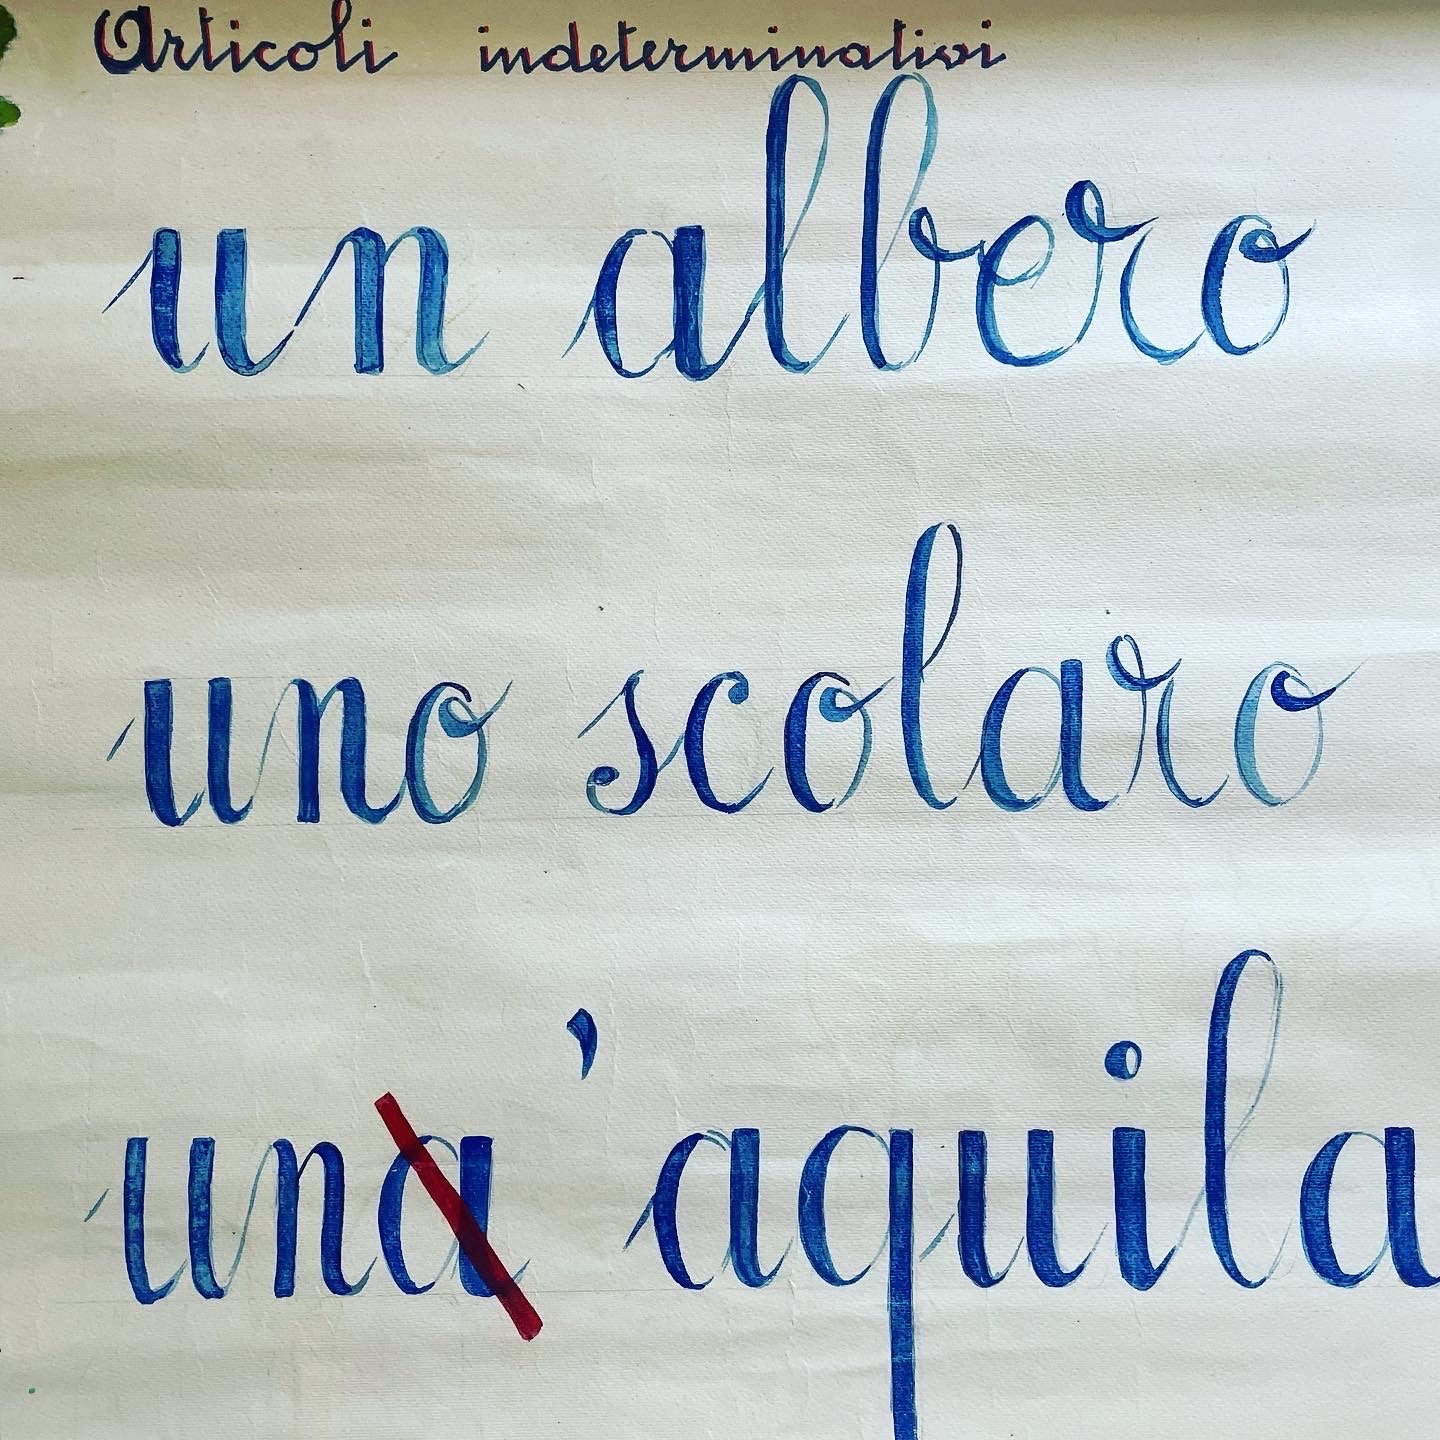 Articoli indeterminativi
un albero
uno scolaro
una'aquila